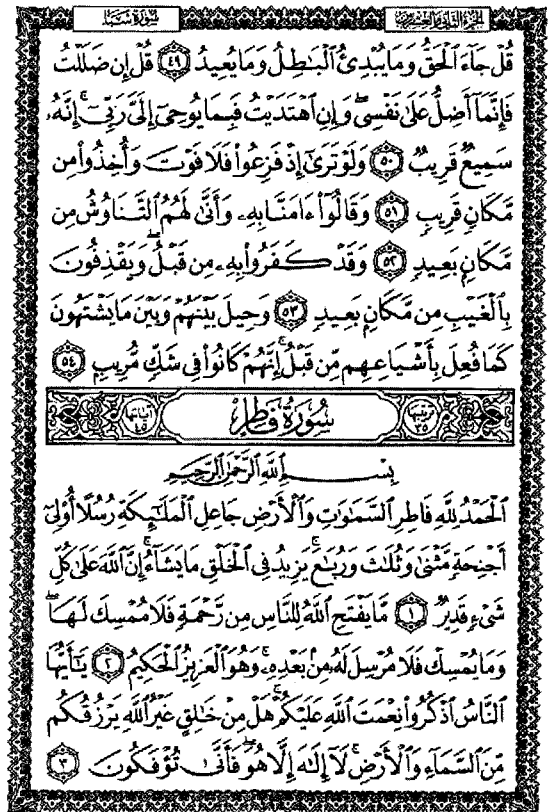 الجزء الثاني والعشرون سورة سبأ
قُلْ جَآءَ ٱلْحَقُّ وَمَا يُبْدِئُ ٱلْبَٰطِلُ وَمَا يُعِيدُ ٤٩ قُلْ إِن ضَلَلْتُ
فَإِنَّمَآ أَضِلُّ عَلَىٰ نَفْسِىۖ وَإِنِ ٱهْتَدَيْتُ فَبِمَا يُوحِىٓ إِلَىَّ رَبِّىٓۚ إِنَّهُۥ
سَمِيعٌ قَرِيبٌ ٥٠ وَلَوْ تَرَىٰٓ إِذْ فَزِعُوا۟ فَلَا فَوْتَ وَأُخِذُوا۟ مِن
مَّكَانٍ قَرِيبٍ ٥١ وَقَالُوٓا۟ ءَامَنَّا بِهِۦ وَأَنَّىٰ لَهُمُ ٱلتَّنَاوُشُ مِن
مَّكَانٍۭ بَعِيدٍ ٥٢ وَقَدْ كَفَرُوا۟ بِهِۦ مِن قَبْلُۖ وَيَقْذِفُونَ
بِٱلْغَيْبِ مِن مَّكَانٍۭ بَعِيدٍ ٥٣ وَحِيلَ بَيْنَهُمْ وَبَيْنَ مَا يَشْتَهُونَ
كَمَا فُعِلَ بِأَشْيَاعِهِم مِّن قَبْلُۚ إِنَّهُمْ كَانُوا۟ فِى شَكٍّ مُّرِيبٍۭ ٥٤
ترتيبها ٣٥ سُورَةُ فَاطِرٍ آياتها ٤٥
بِسْمِ ٱللَّهِ ٱلرَّحْمَٰنِ ٱلرَّحِيمِ
ٱلْحَمْدُ لِلَّهِ فَاطِرِ ٱلسَّمَٰوَٰتِ وَٱلْأَرْضِ جَاعِلِ ٱلْمَلَٰٓئِكَةِ رُسُلًا أُو۟لِىٓ
أَجْنِحَةٍ مَّثْنَىٰ وَثُلَٰثَ وَرُبَٰعَۚ يَزِيدُ فِى ٱلْخَلْقِ مَا يَشَآءُۚ إِنَّ ٱللَّهَ عَلَىٰ كُلِّ
شَىْءٍ قَدِيرٌ ١ مَّا يَفْتَحِ ٱللَّهُ لِلنَّاسِ مِن رَّحْمَةٍ فَلَا مُمْسِكَ لَهَاۖ
وَمَا يُمْسِكْ فَلَا مُرْسِلَ لَهُۥ مِنۢ بَعْدِهِۦۚ وَهُوَ ٱلْعَزِيزُ ٱلْحَكِيمُ ٢ يَٰٓأَيُّهَا
ٱلنَّاسُ ٱذْكُرُوا۟ نِعْمَتَ ٱللَّهِ عَلَيْكُمْۚ هَلْ مِنْ خَٰلِقٍ غَيْرُ ٱللَّهِ يَرْزُقُكُم
مِّنَ ٱلسَّمَآءِ وَٱلْأَرْضِۚ لَآ إِلَٰهَ إِلَّا هُوَۖ فَأَنَّىٰ تُؤْفَكُونَ ٣